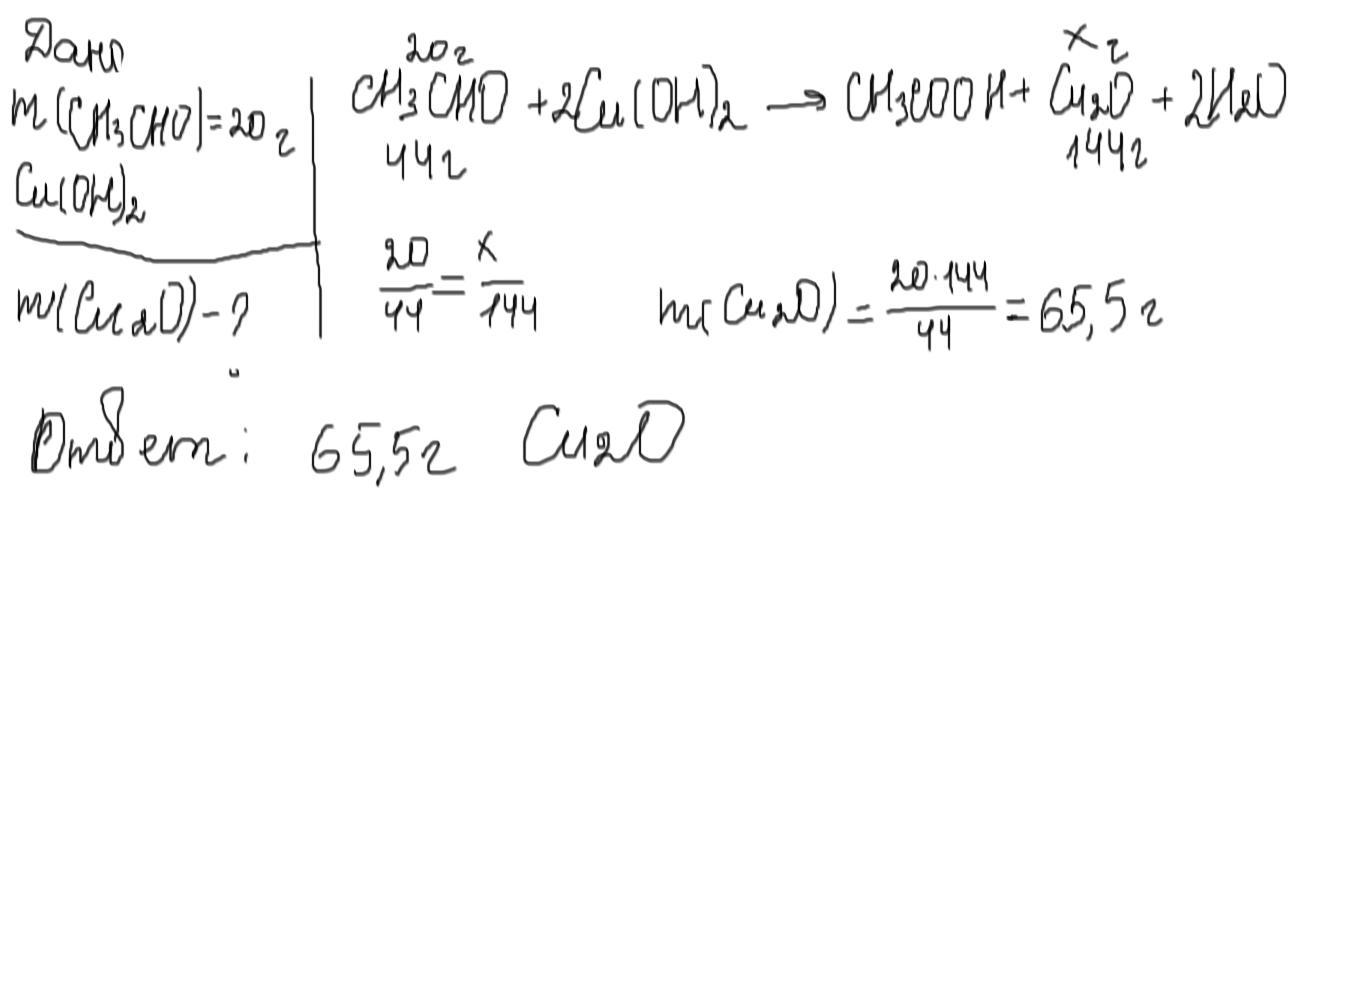 Дано
m(CH3CHO)=20г
Cu(OH)2
m(Cu2O)-?
20г xг
CH3CHO + 2Cu(OH)2 → CH3COOH + Cu2O + 2H2O
44г 144г
20/44 = x/144 m(Cu2O) = 20·144/44 = 65,5г
Ответ: 65,5г Cu2O